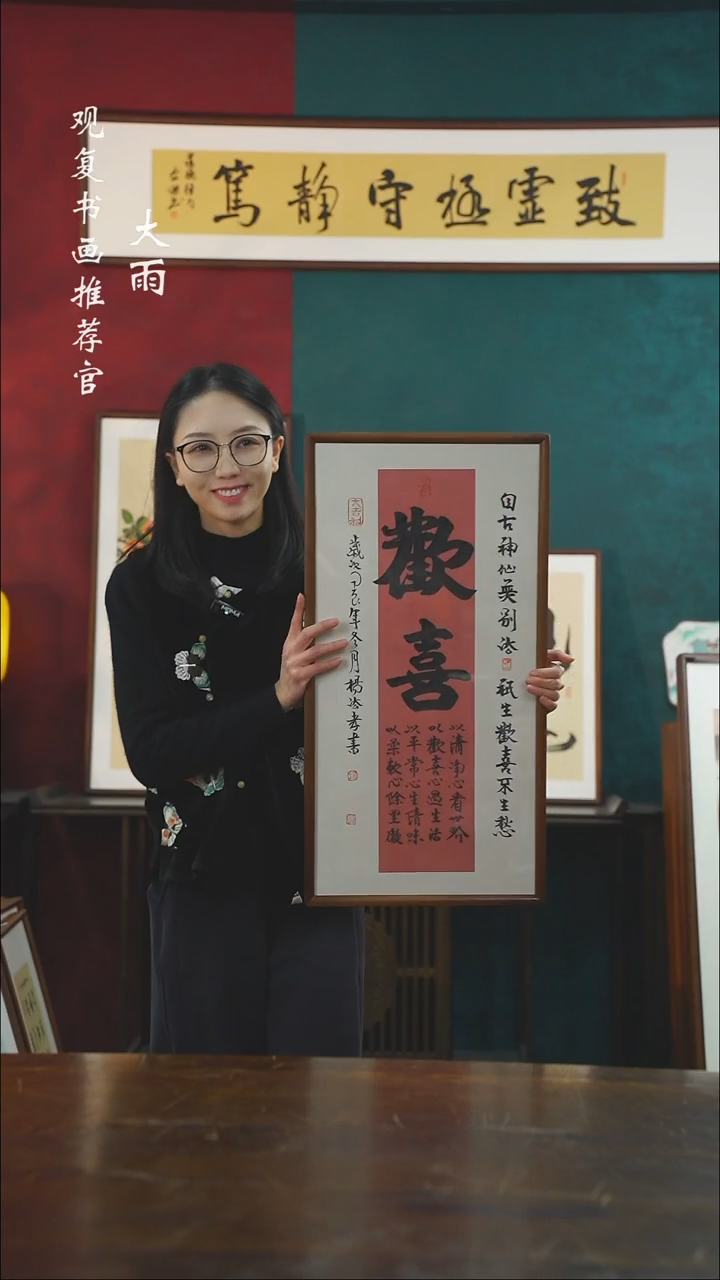 观复书画推荐官
大雨
致虛極守静篤
自古神仙無別法
祇生歡喜不生愁
歡喜
以清净心看世界
以歡喜心過生活
以平常心生情味
以柔軟心除罣礙
歲次甲辰年冬月楊法孝書